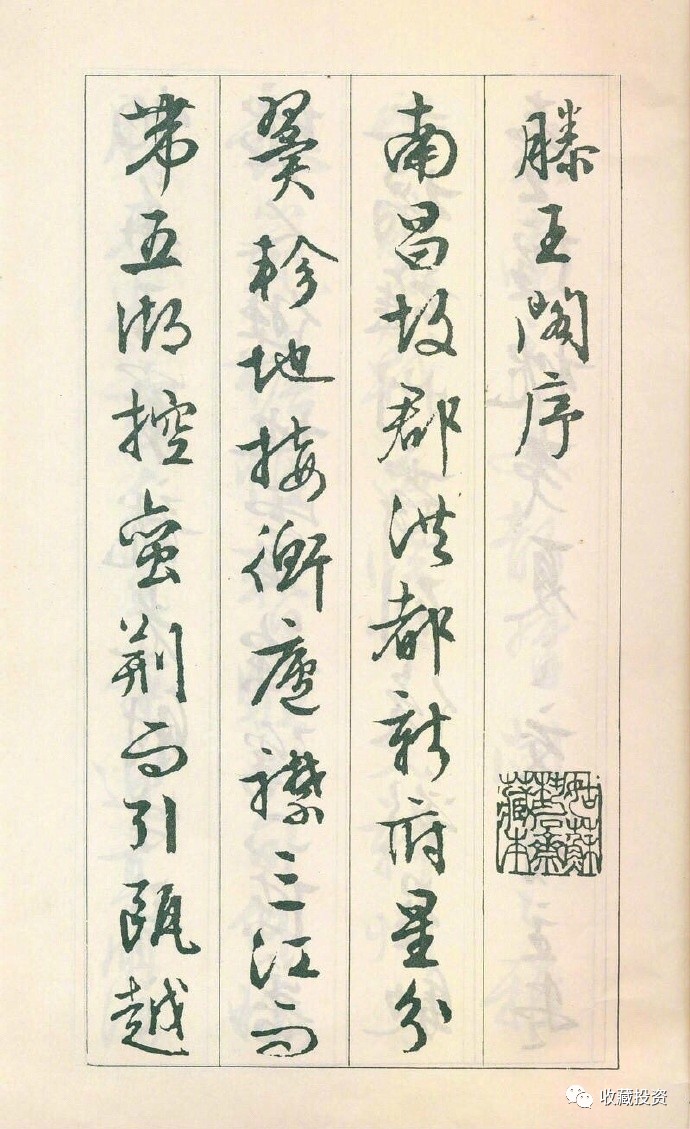 滕王閣序
南昌故郡洪都新府星分
翼軫地接衡廬襟三江而
帶五湖控蠻荊而引甌越
姑蘇
藏本
收藏投资